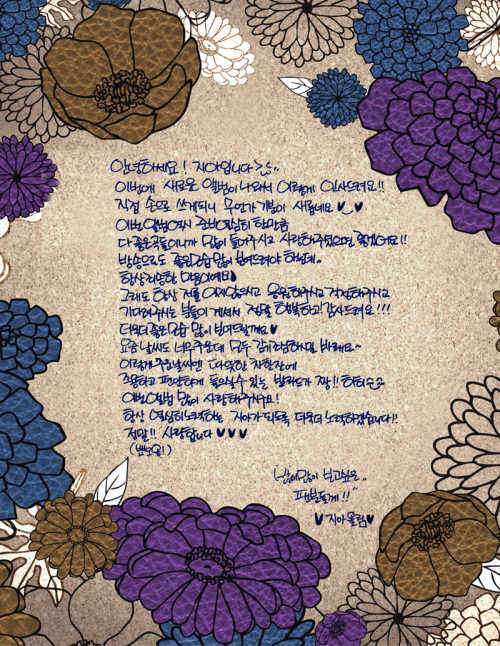 안녕하세요! 지아입니다>_<..
이번에 새로운 앨범이 나와서 이렇게 인사드려요!!
직접 손으로 쓰게되니 무언가 기분이 새롭네요 ♥◡♥
이번 앨범역시 준비열심히 한만큼
다 좋은곡들이니까 많이 들어주시고 사랑해주셨으면 좋겠어요!!
방송으로도 좋은모습 많이 보여드려야 하는데..
항상 죄송한 마음이에요♥
그래도 항상 저를 잊지않으시고 응원해주시고 걱정해주시고
기다려주시는 분들이 계셔서 정말 행복하고 감사드려요!!!
더욱더 좋은모습 많이 보여드릴게요♥
요즘 날씨도 너무추운데 모두 감기조심하시길 바래요~
이렇게 추운날씨엔 따뜻한 차한잔에
조용하고 편안하게 들으실수 있는 발라드가 짱!! 하하하
이번앨범 많이 사랑해주세요!
항상 열심히노력하는 지아가 되도록 더욱더 노력하겠습니다!!
정말!! 사랑합니다 ♥♥♥
많이많이 보고싶은..
팬분들께!!"
♥지아올림♥